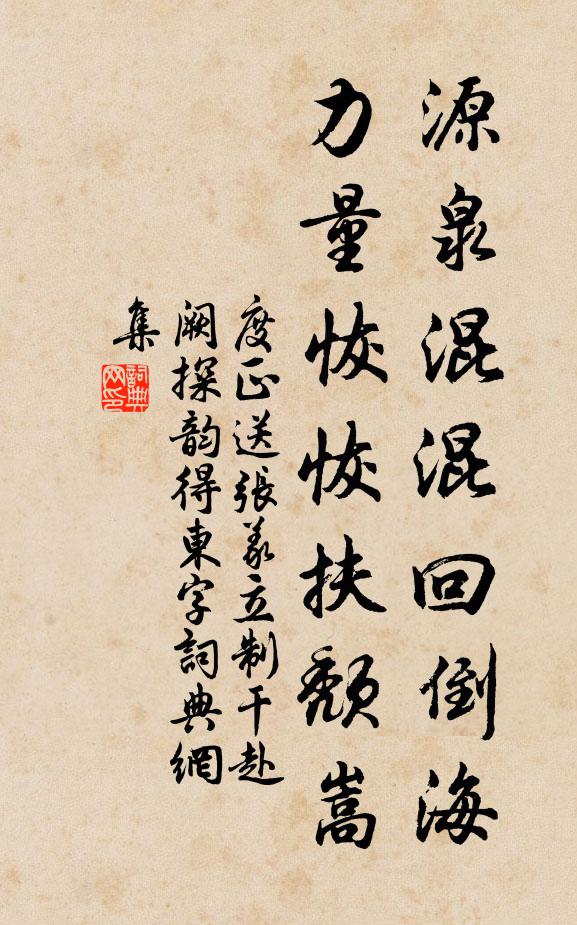 源泉混混回倒海
力量恢恢扶頹嵩
度正送張義立制干赴
闕探韵得東字詞典網
集
詞典
网印